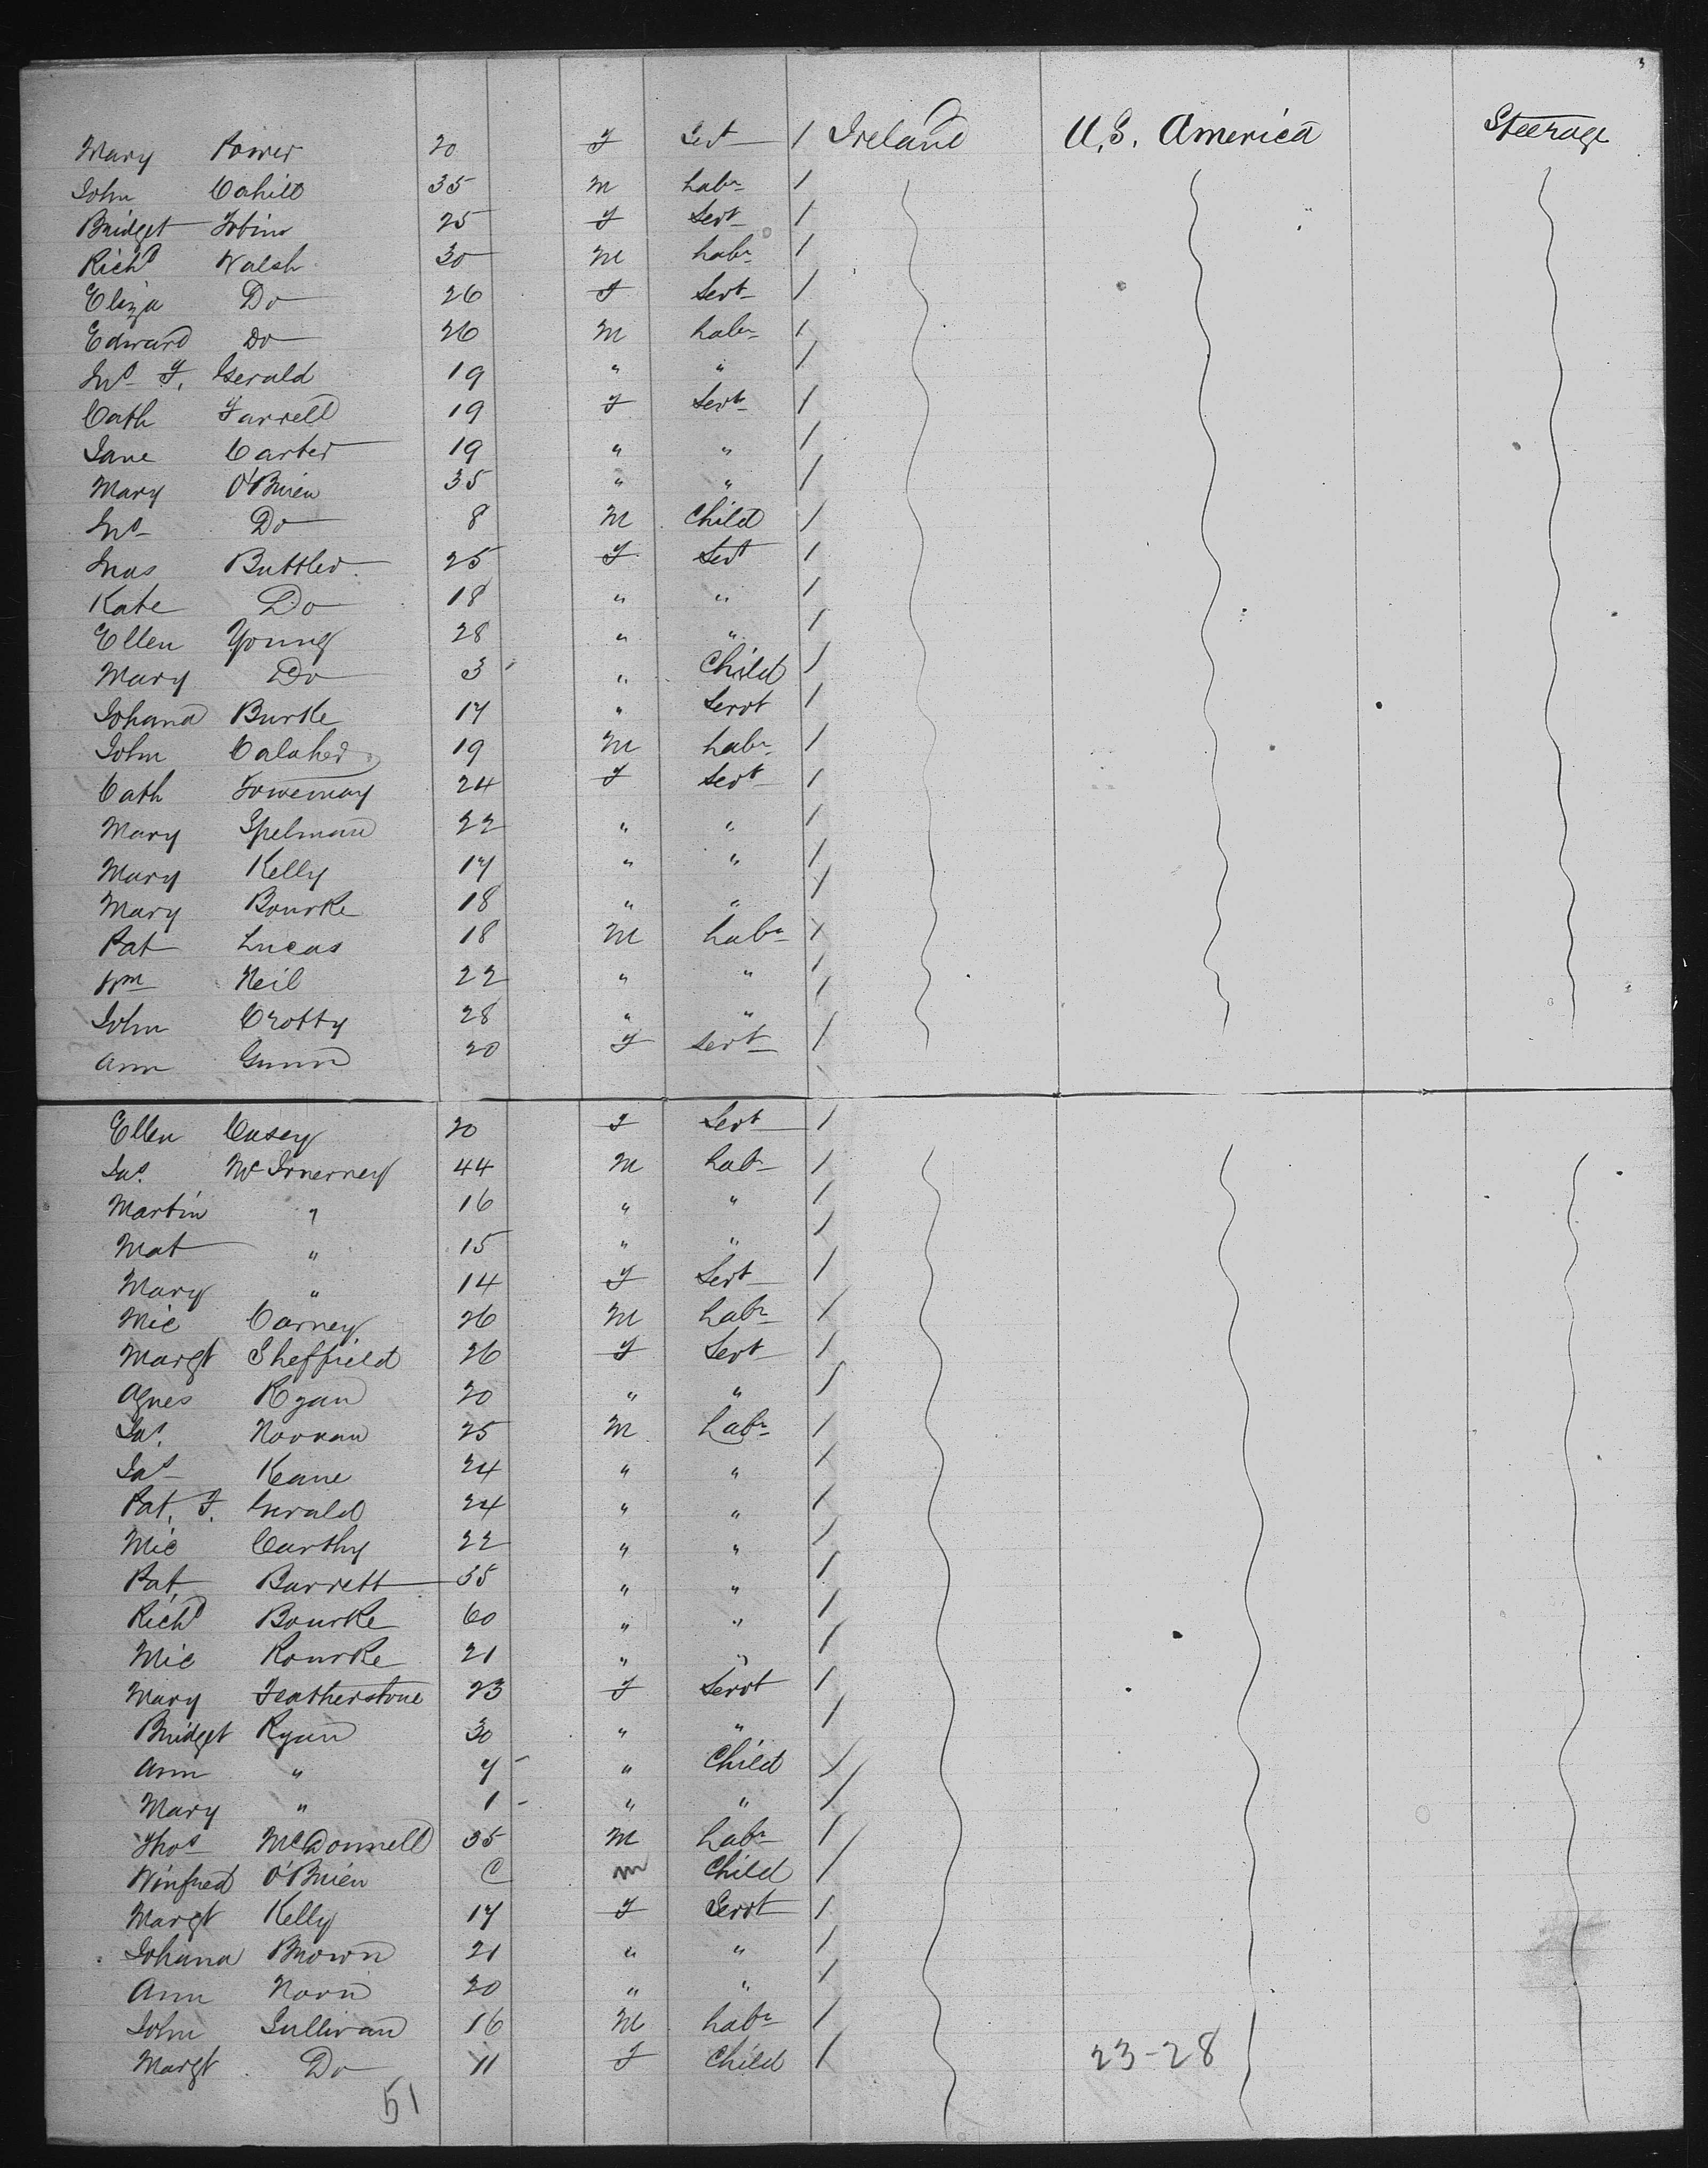 Mary Power 20 F Sevt / Ireland U.S. America Steerage
John Cahill 35 M Labr /
Bridget Tobin 25 F Sevt /
Richd Walsh 30 M Labr /
Eliza Do 26 F Sevt /
Edward Do 26 M Labr /
Jno F. Gerald 19 " " /
Cath Farrell 19 F Sevt /
Jane Carter 19 " " /
Mary O'Brien 35 " " /
Jno Do 8 M Child /
Buttler 25 F Sevt /
Kate Do 18 " " /
Ellen Young 28 " " /
Mary Do 3 " Child /
Johana Burke 17 " Servt /
John Calaher 19 M Labr /
Cath 24 F Sevt /
Mary Spelman 22 " " /
Mary Kelly 17 " " /
Mary Bourke 18 " " /
Pat Lucas 18 M Labr /
Wm Neil 22 " " /
John Crotty 28 " " /
Ann Gunn 20 F Sevt /
Ellen Casey 20 F Sevt /
Jas. McInnerney 44 M Labr /
Martin " 16 " " /
Mat " 15 " " /
Mary " 14 F Sevt /
Mic Carney 26 M Labr /
Margt Sheffield 26 F Sevt /
Agnes Ryan 20 " " /
Jas. Noonan 25 M Labr /
Jas Keane 24 " " /
Pat. F. Gerald 24 " " /
Mic Carthy 22 " " /
Pat Barrett 35 " " /
Richd Bourke 60 " " /
Mic Rourke 21 " " /
Mary Featherstone 23 F Servt /
Bridget Ryan 30 " " /
Ann " 7 " Child /
Mary " 1 " " /
Thos McDonnell 35 M Labr /
Winfred O'Brien C m Child /
Margt Kelly 17 F Servt /
Johana Brown 21 " " /
Ann Noon 20 " " /
John Sullivan 16 M Labr /
Margt Do 11 F Child / 23-28
51